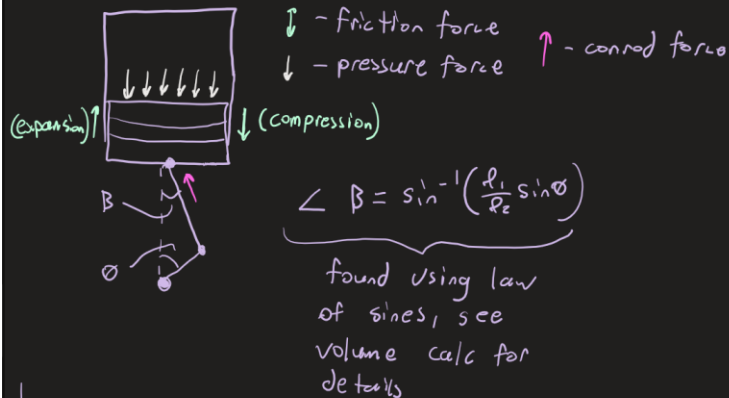 ↕ - friction force
↓ - pressure force
↑ - conrod force
(expansion)
(compression)
β
∅
∠ β = sin⁻¹(ℓ₁/ℓ₂ sin∅)
found using law
of sines, see
volume calc for
details